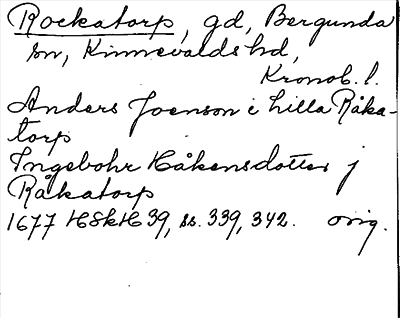 Rockatorp, gd, Bergunda
sn, Kinnevalds hd,
Kronob. l.
Anders Joenson i Lilla Råka-
torp
Ingebohr Håkensdotter j
Råkatorp
1677 HSkH 39, ss. 339, 342. orig.